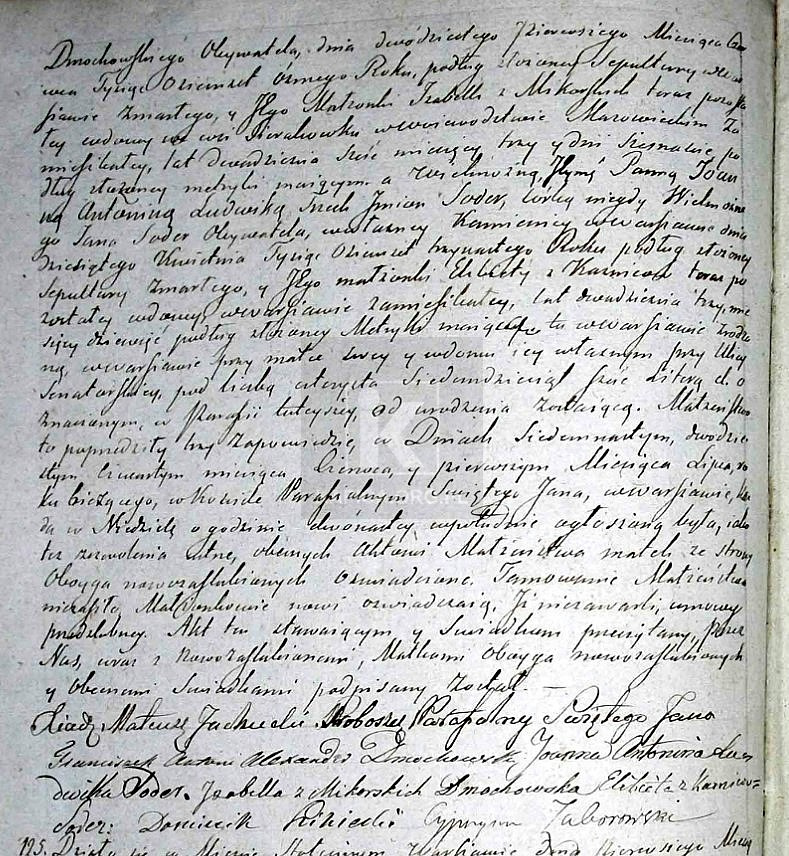 Dmochowskiego Obywatela, dnia dwódziestego Pierwszego Miesiąca Czer
wca Tysiąc Ośiemset Osmego Roku, podług złożoney Sepultury w War
szawie zmarłego, y Jego Małżonki Izabelli z Mikorskich teraz pozosta
łey wdowy we wsi w Woiewodztwie Mazowieckim Za
mieszkałey, lat dwadzieścia sześć miesięcy trzy y dni szesnaście po
dług złożoney metryki maiącym. a Wielmożną Jeymć Panną Joan
ną Antoniną Ludwiką trzech Jmion Soder, córką niegdy Wielmożne
go Jana Soder Obywatela, właściciela Kamienicy w Warszawie dnia
dziesiątego Kwietnia Tysiąc Ośiemset trzynastego Roku podług złożoney
Sepultury zmarłego, y Jego małżonki Elżbiety z teraz po
zostałey wdowy, w Warszawie zamieszkałey, lat dwadzieścia trzy, mie
sięcy dziewięć podług złożoney Metryki maiącą tu w Warszawie zrodzo
ną, w Warszawie przy matce swey y w domu iey własnym przy Ulicy
Senatorskiey, pod liczbą czterysta Siedmdziesiąt Sześć Literą d. o
znaczonym, w Parafii tuteyszey od urodzenia zostaiącą. Małżeństwo
to poprzedziły trzy Zapowiedzie, w Dniach Siedmnastym, dwodzie
stym Czwartym miesiąca Czerwca, y pierwszym Miesiąca Lipca, ro
ku bieżącego, w Kosciele Parafialnym Swiętego Jana, w Warszawie, każ
da w Niedzielę o godzinie dwónastey w południe ogłoszoną była, iako
też zezwolenia ustne, obecnych Aktowi Małżeństwa matek ze strony
Oboyga nowozaślubionych oswiadczone. Tamowanie Małżeństwa
niezaszło, Małżonkowie nowi oswiadczaią, Jż niezawarli, umowy
przedslubney. Akt ten stawaiącym y Swiadkom przeczytany, Przez
Nas, wraz z Nowozaślubionemi, Matkami Oboyga nowozaślubionych
y Obecnemi Swiadkami podpisany został. —
Xiądz Mateusz Proboszcz Parafialny Swiętego Jana
Franciszek Antoni Alexander Dmochowski, Joanna Antonina Lu
dwika Soder. Izabella z Mikorskich Dmochowska Elżbieta z
Soder: Cypryan Zaborowski
125. Działo się w Miescie Stołecznym Warszawie dnia Pierwszego Miesią